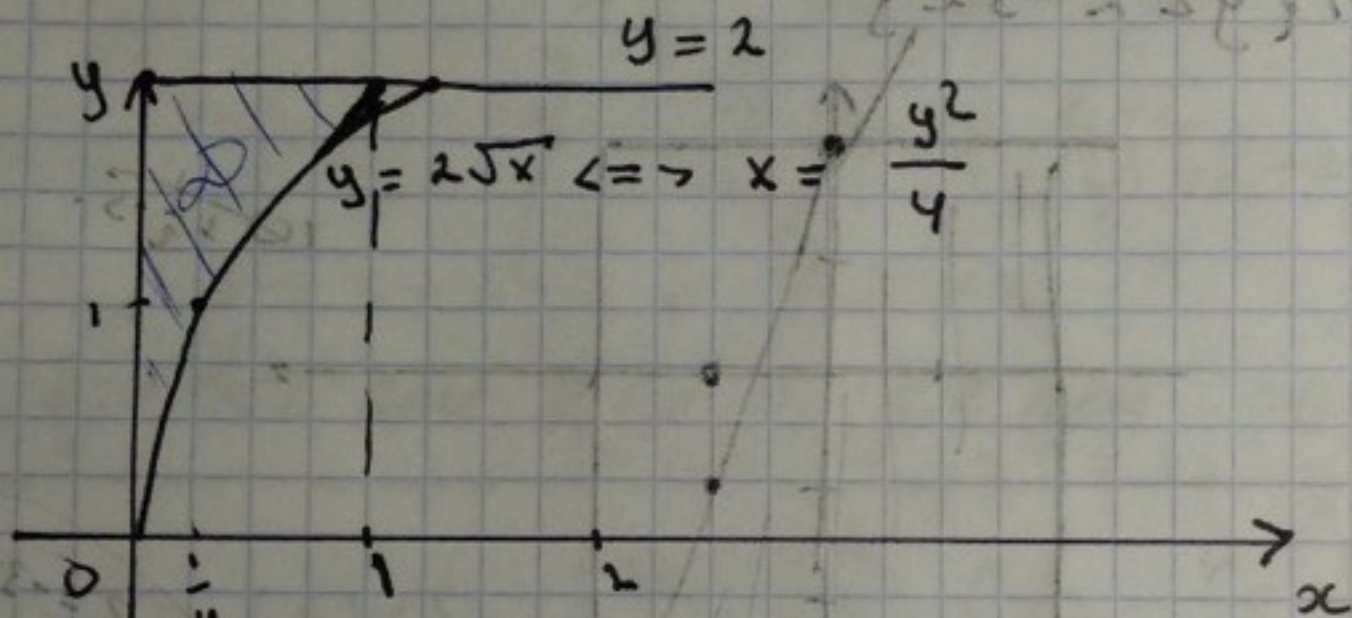 y = 2
y
y = 2√x <=> x = y²/4
D
1
0 1/4 1 2 x